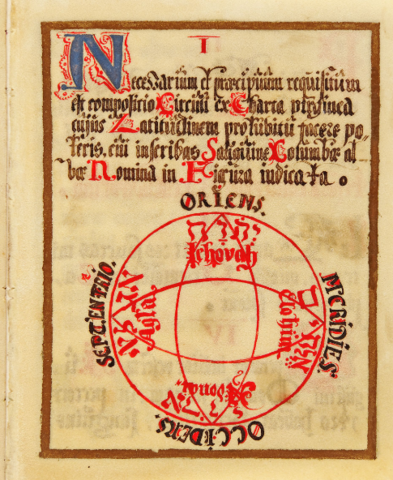 I
Necessarium et præcipuum requisitum
est compositio Circuli ex Charta
cujus Latitudinem pro libitu facere po-
teris, cui inscribas Sanguine Columbæ al-
bæ Nomina in Figura indicata.
ORIENS.
Jehovah
SEPTENTRIO.
Agla
Elohim
MERIDIES.
Adonai
OCCIDENS.